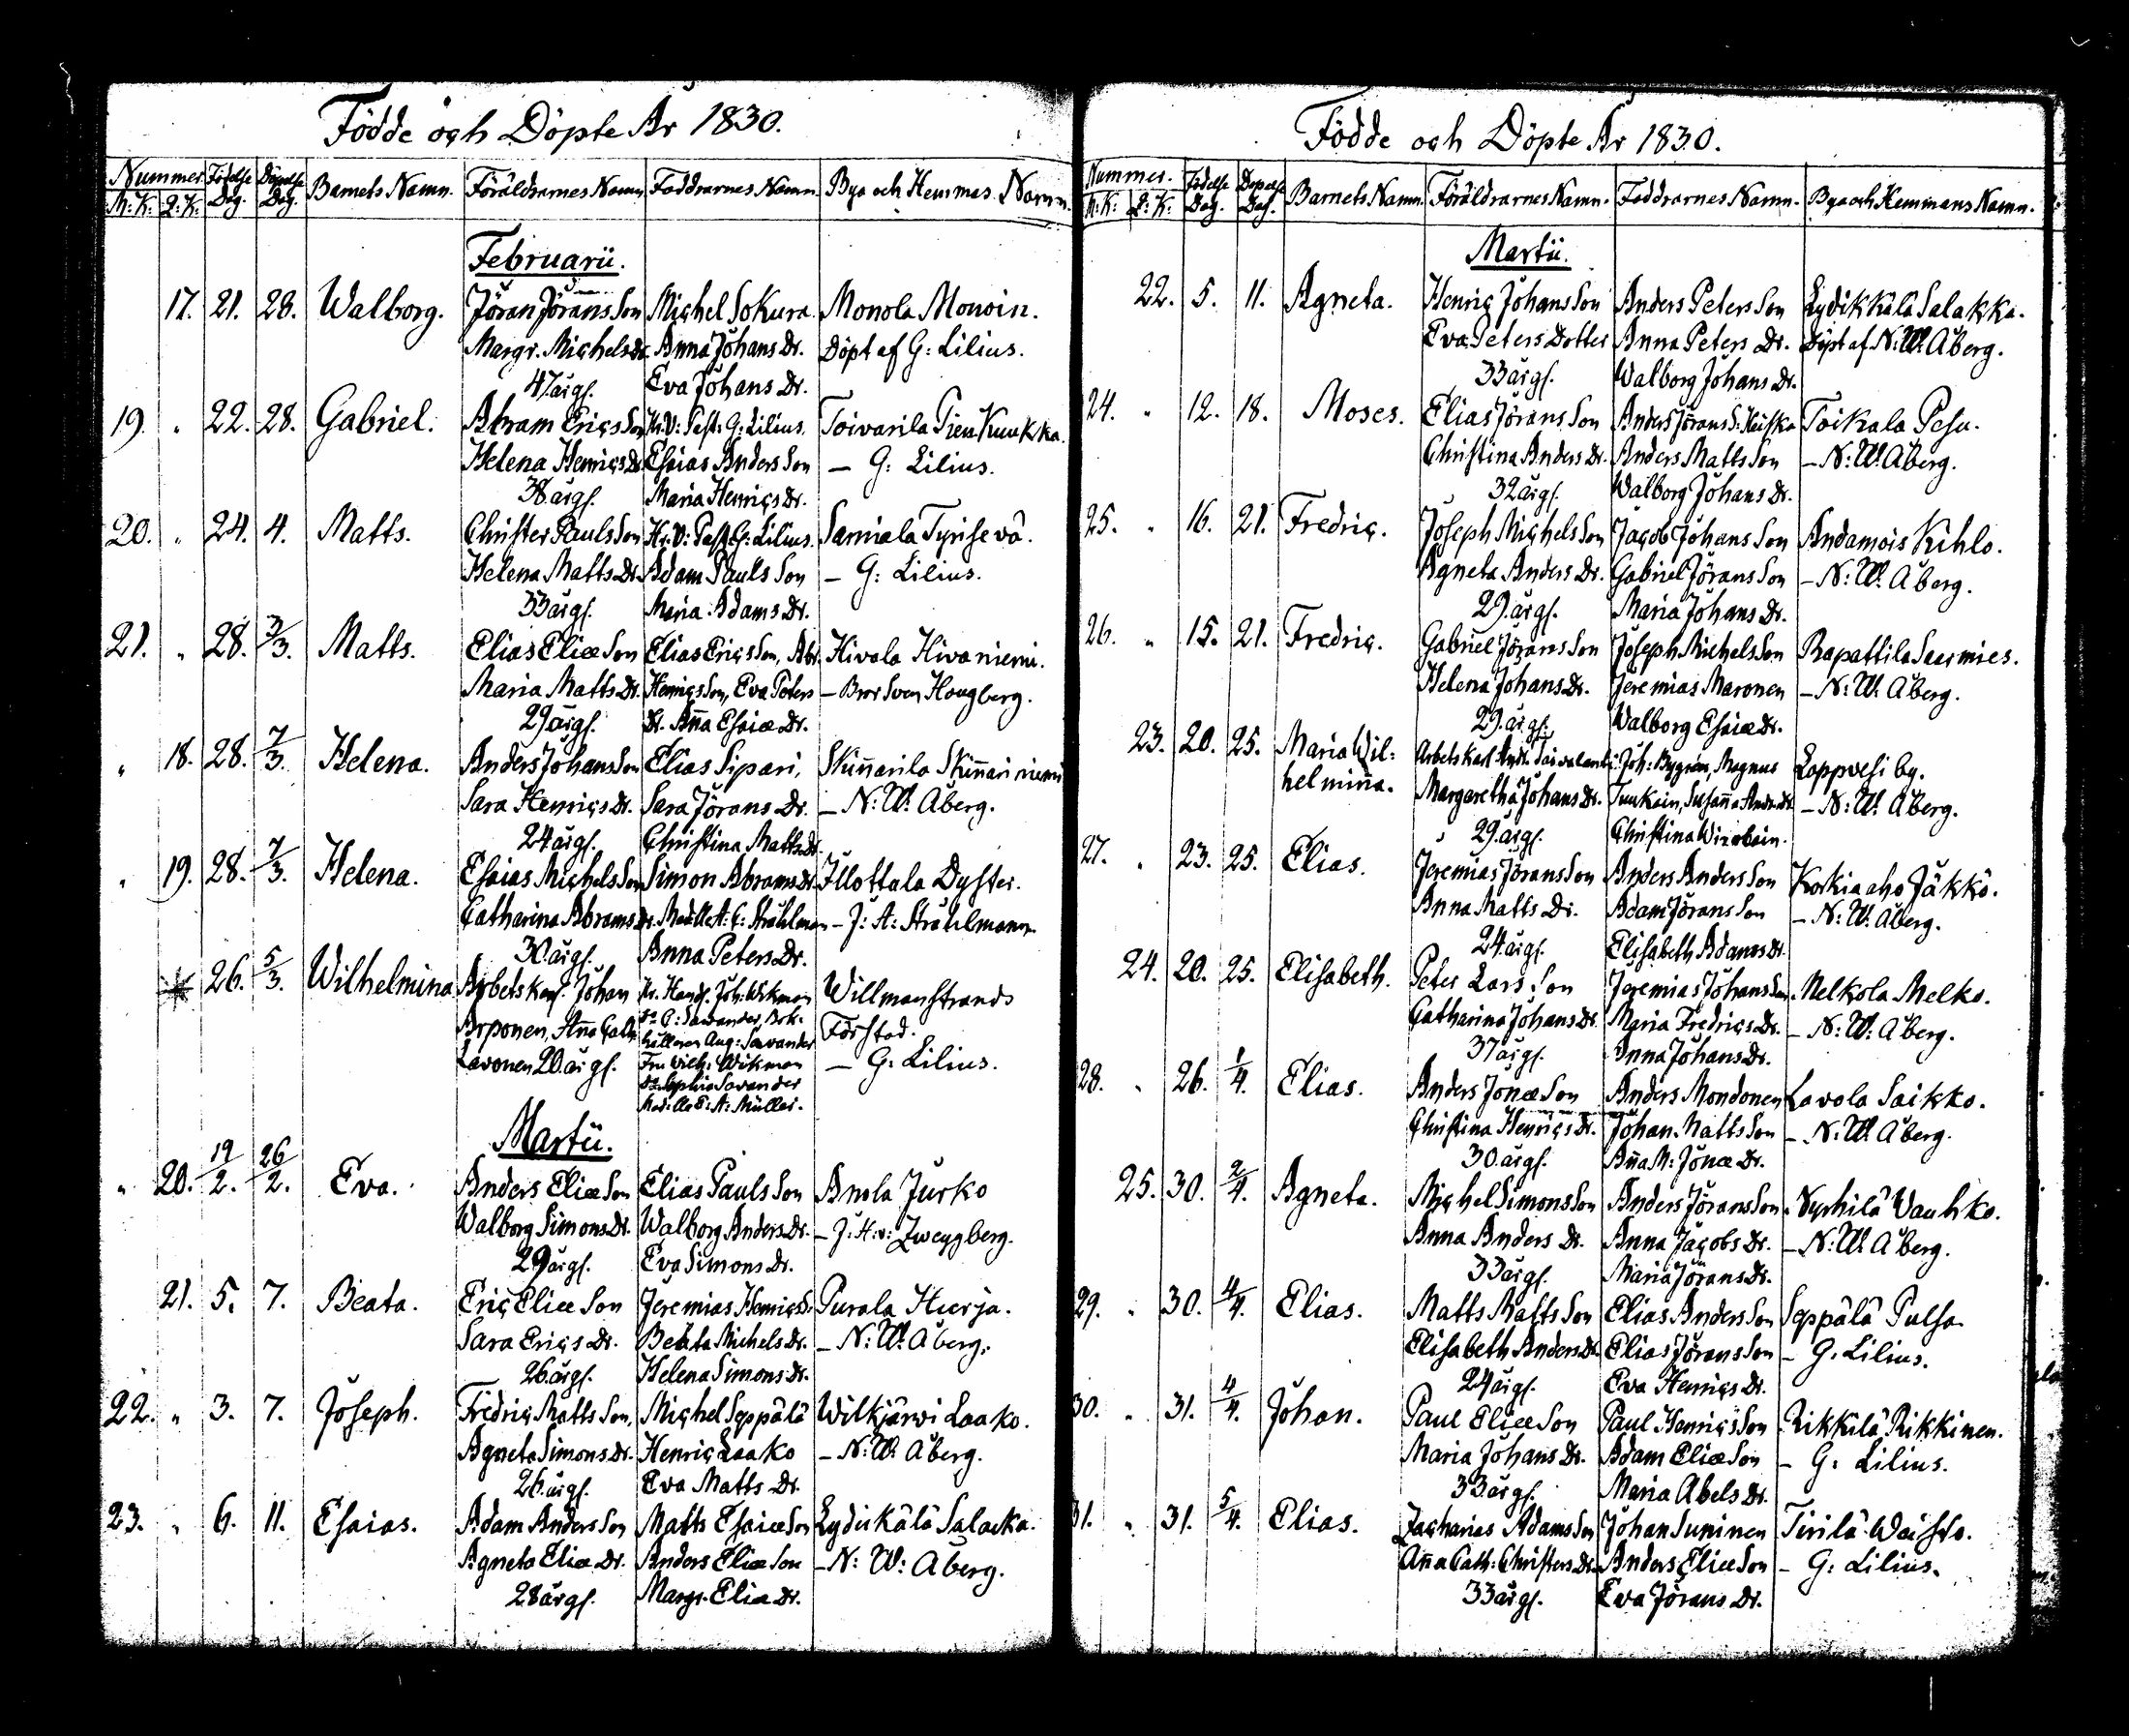 Födde och Döpte År 1830.
Nummer. Födelse Dag. Döpelse Dag. Barnets Namn. Föräldrarnes Namn Faddrarnes Namn. Bya och Hemmas. Namn.
M: K: Q: K:
Februarii.
17. 21. 28. Walborg. Jöran Jörans Son Michel Sokura. Monola Monoin.
Margr. Michels Dr. Anna Johans Dr. Döpt af G: Lilius.
47 årgl. Eva Johans Dr.
19. " 22. 28. Gabriel. Abram Erics Son Kr. V: Past: G: Lilius. Toivarila Pien Kuukka.
Helena Henrics Dr. Esaias Anders Son — G: Lilius.
38 årgl. Maria Henrics Dr.
20. " 24. 4. Matts. Christer Pauls Son Kr. V: Past: G: Lilius. Samiala Tyrisevä.
Helena Matts Dr. Adam Pauls Son — G: Lilius.
33 årgl. Maria Adams Dr.
21. " 28. 3/3. Matts. Elias Eliæ Son Elias Erics Son, Abr. Hivala Hivaniemi.
Maria Matts Dr. Henrics Son, Eva Peters — Bror Sven Hougberg.
29 årgl. Dr. Aña Esaiæ Dr.
" 18. 28. 7/3. Helena. Anders Johans Son Elias Sipari, Skiñarila Skiñari niemi
Sara Henrics Dr. Sara Jörans Dr. — N: W. Åberg.
24 årgl. Christina Matts Dr.
" 19. 28. 7/3. Helena. Esaias Michels Son Simon Abrams Dr. Illottala Dyster.
Catharina Abrams Dr. Mad:lle A: C: Stråhlman — J: A: Stråhlmann
30 årgl. Anna Peters Dr.
26. 5/3. Wilhelmina Arbetskarl. Johan Hr. Handl. Joh. Wikman Willmanstrands
Arponen, Aña Cath. Dr C: Savander, Bok- Förstad.
Lavonen 20 årgl. hålleren Aug: Savander — G: Lilius.
Fru Wilh: Wikman
Dr. Sophia Savander
Mad:lle E: A: Müller.
Martii.
" 20. 19/2. 26/2. Eva. Anders Eliæ Son Elias Pauls Son Anola Jurko
Walborg Simons Dr. Walborg Anders Dr. — J: H: v: Zweygberg.
29 årgl. Eva Simons Dr.
21. 5. 7. Beata. Eric Eliæ Son Jeremias Henrics S. Purala Hurja.
Sara Erics Dr. Beata Michels Dr. — N: W. Åberg.
26 årgl. Helena Simons Dr.
22. " 3. 7. Joseph. Fredric Matts Son. Michel Seppälä Wilkjärvi Laako.
Agneta Simons Dr. Henric Laako — N: W. Åberg.
26 årgl. Eva Matts Dr.
23. " 6. 11. Esaias. Adam Anders Son Matts Esaiæ Son Lydikälä Salacka.
Agneta Eliæ Dr. Anders Eliæ Son — N: W: Åberg.
28 årgl. Margr. Eliæ Dr.
Födde och Döpte År 1830.
Nummer. Födelse Dag. Döpelse Dag. Barnets Namn. Föräldrarnes Namn. Faddrarnes Namn. Bya och Hemmans Namn.
M: K: Q: K:
Martii.
22. 5. 11. Agneta. Henric Johans Son Anders Peters Son Lydikkälä Salakka.
Eva Peters Dotter Anna Peters Dr. Döpt af N: W. Åberg.
33 årgl. Walborg Johans Dr.
24. " 12. 18. Moses. Elias Jörans Son Anders Jörans S: Huska Toikala Pesu.
Christina Anders Dr. Anders Matts Son — N: W. Åberg.
32 årgl. Walborg Johans Dr.
25. " 16. 21. Fredric. Joseph Michels Son Jacob Johans Son Andamois Kihlo.
Agneta Anders Dr. Gabriel Jörans Son — N: W. Åberg.
29 årgl. Maria Johans Dr.
26. " 15. 21. Fredric. Gabriel Jörans Son Joseph Michels Son Rapattila Suurmies.
Helena Johans Dr. Jeremias Maronen — N: W. Åberg.
29. årgl. Walborg Esaiæ Dr.
23. 20. 25. Maria Wil- Arbetskarl Andr. Taivalanti Joh: Bygrén, Magnus Lappvesi by.
helmiña. Margaretha Johans Dr. Juukain, Susaña And: Dr. — N: W. Åberg.
29 årgl. Christina Wirobain.
27. " 23. 25. Elias. Jeremias Jörans Son Anders Anders Son Korkiaaho Jäkkö.
Anna Matts Dr. Adam Jörans Son — N: W. Åberg.
24 årgl. Elisabeth Adams Dr.
24. 20. 25. Elisabeth. Peter Lars Son Jeremias Johans Son. Melkola Melko.
Catharina Johans Dr. Maria Fredrics Dr. — N: W. Åberg.
37 årgl. Anna Johans Dr.
28. " 26. 1/4. Elias. Anders Jonæ Son Anders Mondonen Lavola Saikko.
Christina Henrics Dr. Johan. Matts Son — N: W. Åberg.
30 årgl. Aña M: Jonæ Dr.
25. 30. 2/4. Agneta. Michel Simons Son Anders Jörans Son. Nyrhilä Vauhko.
Anna Anders Dr. Anna Jacobs Dr. — N: W. Åberg.
33 årgl. Maria Jörans Dr.
29. " 30. 4/4. Elias. Matts Matts Son Elias Anders Son Seppälä Pulsa
Elisabeth Anders Dr. Elias Jörans Son — G: Lilius.
24 årgl. Eva Henrics Dr.
30. " 31. 4/4. Johan. Paul Eliæ Son Paul Henrics Son Rikkilä Rikkinen.
Maria Johans Dr. Adam Eliæ Son — G: Lilius.
33 årgl. Maria Abels Dr.
31. " 31. 5/4. Elias. Zacharias Adams Son Johan Suninen Tirilä
Aña Cath: Christers Dr. Anders Eliæ Son — G: Lilius.
33 årgl. Eva Jörans Dr.